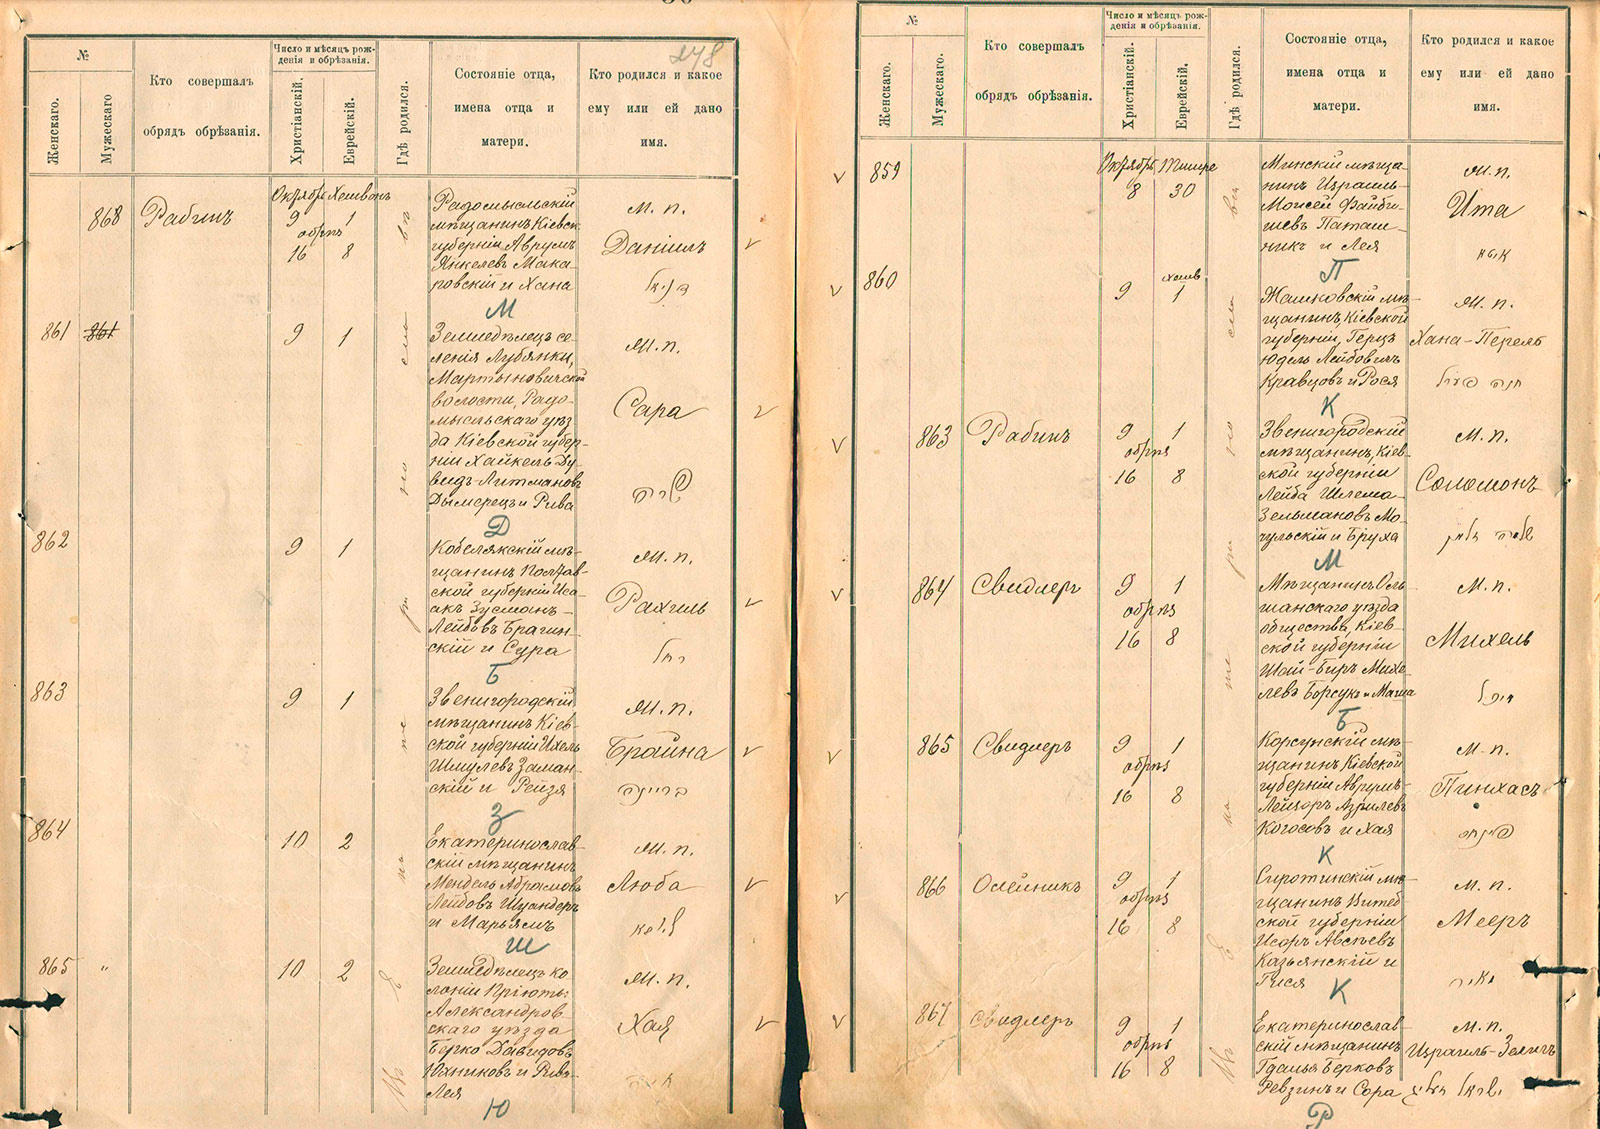 278
№
Женскаго.
Мужескаго
Кто совершалъ
обрядъ обрѣзанія.
Число и мѣсяцъ рож-
денія и обрѣзанія.
Христіанскій.
Еврейскій.
Гдѣ родился.
Состояніе отца,
имена отца и
матери.
Кто родился и какое
ему или ей дано
имя.
868
Рабинъ
Октябрь Хешванъ
9 1
обрѣз
16 8
Радомысльскій
мѣщанинъ Кіевск
губерніи Аврумъ
Янкелевъ Мака-
ровскій и Хана
м. п.
Даніилъ
דניאל
М
861
861
9 1
Земледѣлецъ се-
ленія Лубянки,
Мартыновичской
волости, Радо-
мысльскаго уѣз
да Кіевской губер-
ніи Хайкель Ду-
видъ-Литмановъ
Дымерецъ и Рива
м. п.
Сара
שרה
Д
862
9 1
Кобелякскій мѣ-
щанинъ Полтав-
ской губерніи Иса-
акъ Зусманъ-
Лейбовъ Брагин-
скій и Сура
м. п.
Рахиль
רחל
Б
863
9 1
Звенигородскій
мѣщанинъ Кіев-
ской губерніи Ихель
Шмулевъ Заман-
скій и Рейзя
м. п.
Брайна
בריינה
З
864
10 2
Екатеринослав-
скій мѣщанинъ
Мендель Абрамовъ
Лейбовъ Шандеръ
и Марьямъ
м. п.
Люба
ליבא
Ш
865 "
10 2
Земледѣлецъ ко
лоніи Пріютъ:
Александров
скаго уѣзда
Берко Давидовъ
Юхниковъ и Рив
Лея
м. п.
Хая
חיה
Ю
№
Женскаго.
Мужескаго.
Кто совершалъ
обрядъ обрѣзанія.
Число и мѣсяцъ рож-
денія и обрѣзанія.
Христіанскій.
Еврейскій.
Гдѣ родился.
Состояніе отца,
имена отца и
матери.
Кто родился и какое
ему или ей дано
имя.
859
Октябрь Тишре
8 30
Минскій мѣща-
нинъ Израиль-
Моисей Файби-
шевъ Паташ-
никъ и Лея
м. п.
Ита
איטא
П
860
хешв
9 1
Жашковскій мѣ-
щанинъ, Кіевской
губерніи, Герцъ
Юдель Лейбовичъ
Кравцовъ и Рося
м. п.
Хана-Перель
חנה פערל
К
863
Рабинъ
9 1
обрѣз
16 8
Звенигородскій
мѣщанинъ, Кіев-
ской губерніи
Лейба Шлема-
Зельмановъ Мо-
гульскій и Бруха
м. п.
Соломонъ
שלמה זלמן
М
864
Свидлеръ
9 1
обрѣз
16 8
Мѣщанинъ Оль-
шанскаго уѣзда
общества, Кіев-
ской губерніи
Шай-Беръ Михе-
левъ Борсукъ и Маша
м. п.
Михель
מיכל
Б
865
Свидлеръ
9 1
обрѣз
16 8
Корсунскій мѣ-
щанинъ Кіевской
губерніи Аврумъ-
Лейзоръ Азрилевъ
Когосовъ и Хая
м. п.
Пинхасъ
פינחס
К
866
Олейникъ
9 1
обрѣз
16 8
Сиротинскій мѣ-
щанинъ Витеб
ской губерніи
Исоръ Авсѣевъ
Казьянскій и
Гися
м. п.
Мееръ
מאיר
К
867
Свидлеръ
9 1
обрѣз
16 8
Екатеринослав-
скій мѣщанинъ
Гдалья Берковъ
Ревзинъ и Сора
м. п.
Израиль-Зелигъ
ישראל זעליג
Р